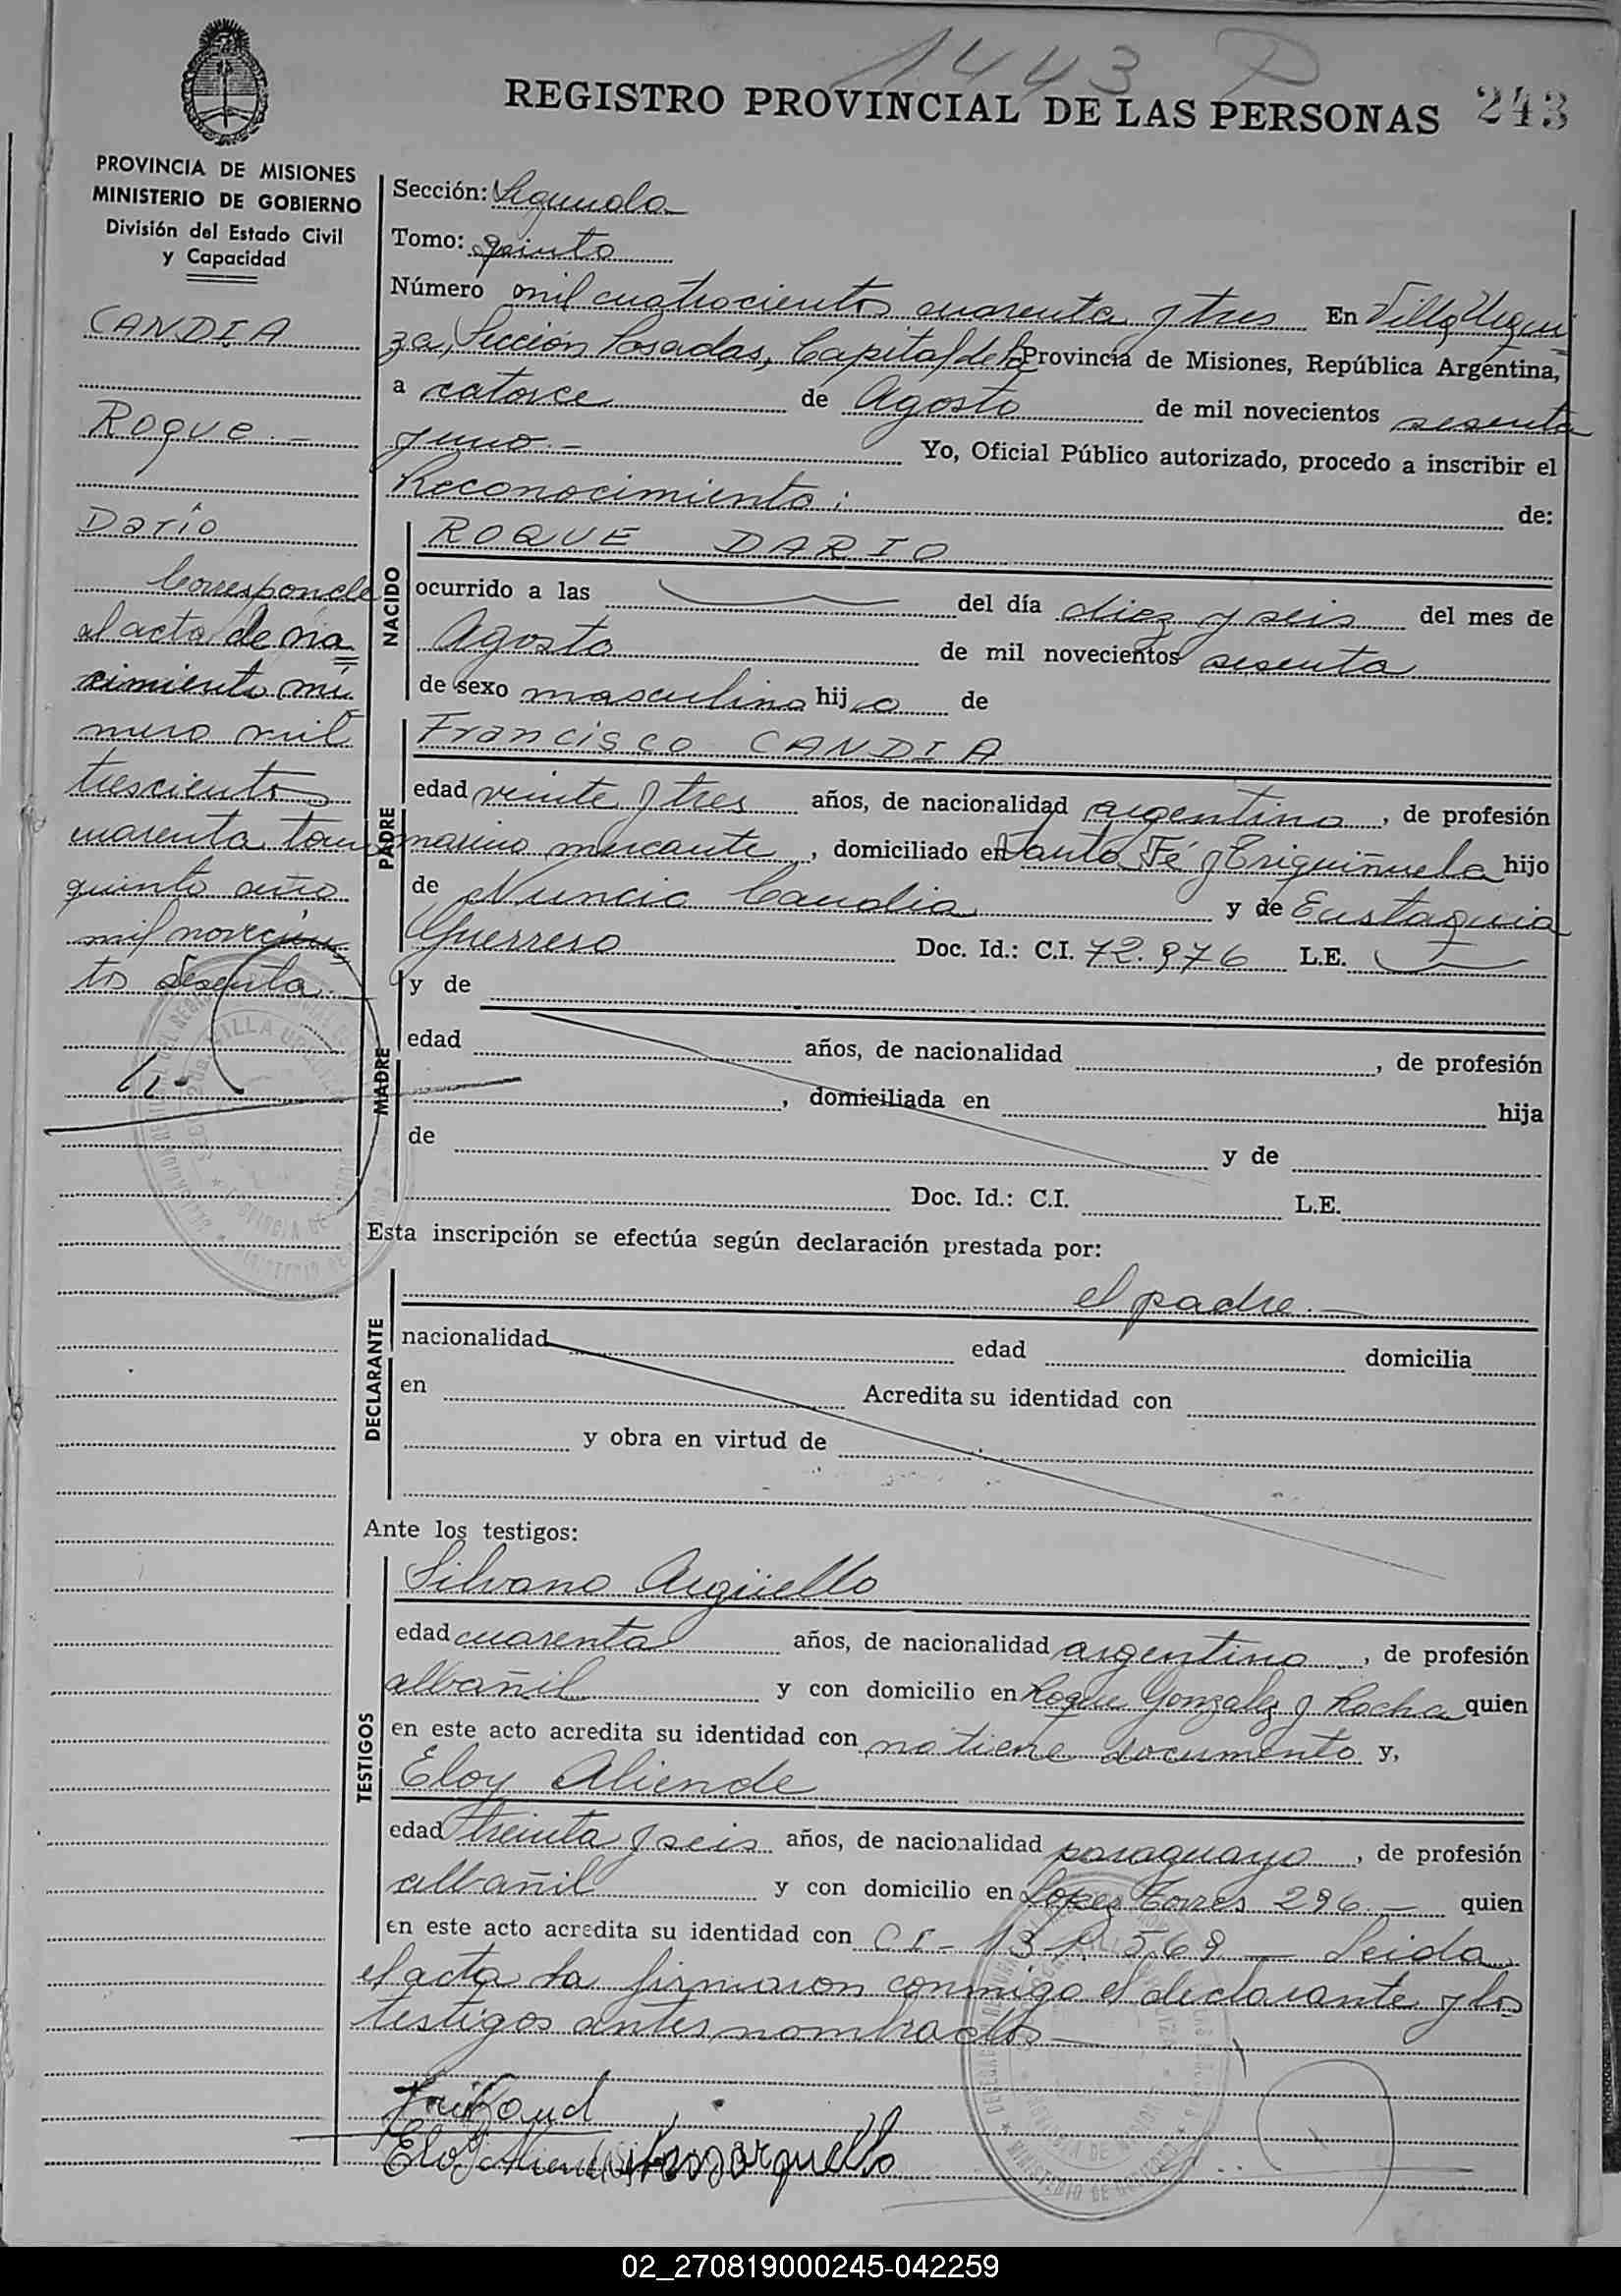 1443 P
REGISTRO PROVINCIAL DE LAS PERSONAS 243
PROVINCIA DE MISIONES
MINISTERIO DE GOBIERNO
División del Estado Civil
y Capacidad
CANDIA
Roque.-
Darío
Corresponde
al acta de na
cimiento nú
mero mil
trescientos
cuarenta tomo
quinto año
mil novecien
tos sesenta
Sección: Segunda
Tomo: quinto
Número mil cuatrocientos cuarenta y tres En Villa Urqui
za, Sección Posadas, Capital de la Provincia de Misiones, República Argentina,
a catorce de Agosto de mil novecientos sesenta
y uno.- Yo, Oficial Público autorizado, procedo a inscribir el
Reconocimiento: de:
NACIDO
ROQUE DARIO
ocurrido a las del día diez y seis del mes de
Agosto de mil novecientos sesenta
de sexo masculino hijo de
PADRE
Francisco CANDIA
edad veinte y tres años, de nacionalidad argentino, de profesión
marino mercante, domiciliado en Santa Fé y Eriguiñuela hijo
de Nuncia Candia y de Eustaquia
Guerrero Doc. Id.: C.I. 72.976 L.E.
MADRE
y de
edad años, de nacionalidad , de profesión
, domiciliada en hija
de y de
Doc. Id.: C.I. L.E.
Esta inscripción se efectúa según declaración prestada por:
DECLARANTE
el padre.-
nacionalidad edad domicilia
en Acredita su identidad con
y obra en virtud de
Ante los testigos:
TESTIGOS
Silvano Argüello
edad cuarenta años, de nacionalidad argentino, de profesión
albañil y con domicilio en Roque Gonzalez y Rocha quien
en este acto acredita su identidad con no tiene documento y,
Eloy Aliende
edad treinta y seis años, de nacionalidad paraguayo, de profesión
albañil y con domicilio en Lopez Torres 296.- quien
en este acto acredita su identidad con CI- Leida
el acta la firmaron conmigo el declarante y los
testigos antes nombrados
02_270819000245-042259